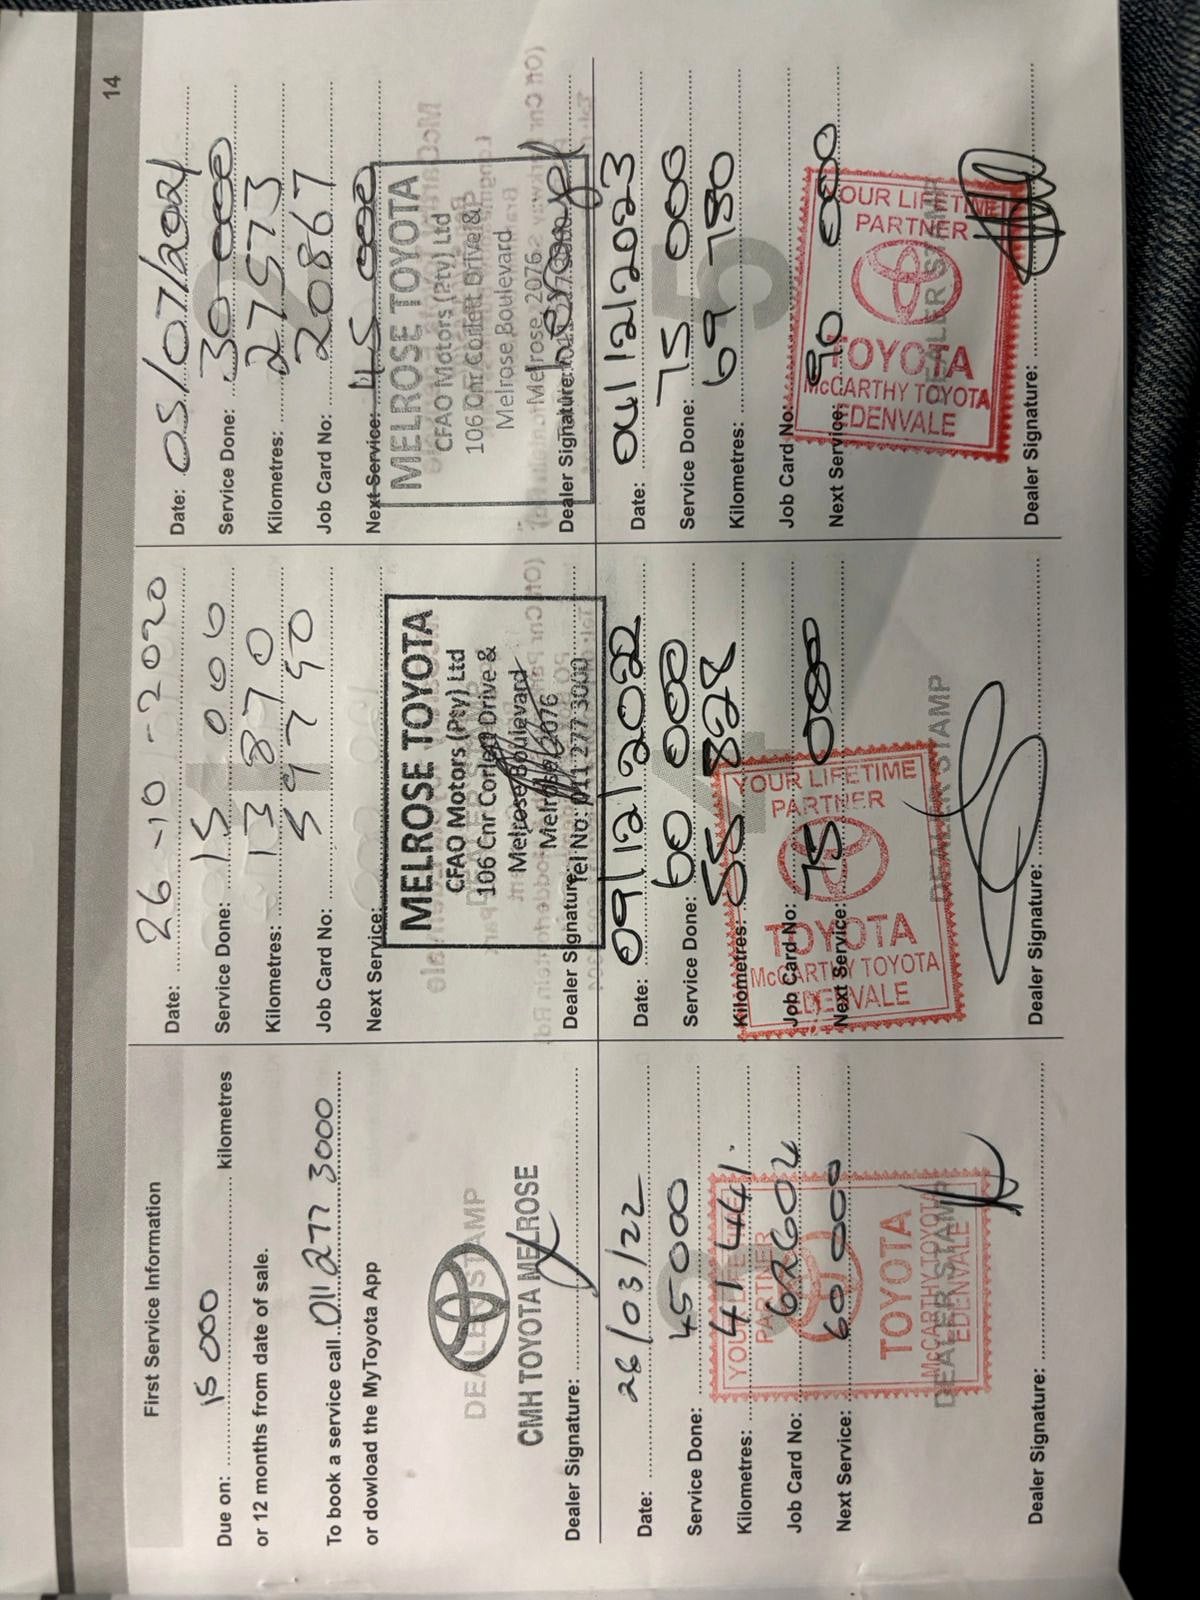 14
First Service Information
Due on: 15 000 kilometres
or 12 months from date of sale.
To book a service call 011 277 3000
or dowload the MyToyota App
DEALER STAMP
CMH TOYOTA MELROSE
Dealer Signature:
Date: 26-10-2020
Service Done: 15 000
Kilometres: 13 870
Job Card No:
Next Service:
MELROSE TOYOTA
CFAO Motors (Pty) Ltd
106 Cnr Corlett Drive &
Melrose Boulevard
Melrose 2076
Tel No: 011 277 3000
Dealer Signature:
Date: 05/07/2021
Service Done: 30 000
Kilometres: 27573
Job Card No: 20867
Next Service: 45 000
MELROSE TOYOTA
CFAO Motors (Pty) Ltd
106 Cnr Corlett Drive &
Melrose Boulevard
Melrose, 2076
Dealer Signature:
3
Date: 26/03/22
Service Done: 45000
Kilometres: 41441.
Job Card No: 62602
Next Service: 60 000
YOUR LIFETIME
PARTNER
TOYOTA
McCARTHY TOYOTA
EDENVALE
DEALER STAMP
Dealer Signature:
4
Date: 09/12/2022
Service Done: 60 000
Kilometres: 55 828
Job Card No:
Next Service: 75 000
YOUR LIFETIME
PARTNER
TOYOTA
McCARTHY TOYOTA
EDENVALE
DEALER STAMP
Dealer Signature:
5
Date: 04/12/2023
Service Done: 75 000
Kilometres: 69 780
Job Card No:
Next Service: 90 000
YOUR LIFETIME
PARTNER
TOYOTA
McCARTHY TOYOTA
EDENVALE
DEALER STAMP
Dealer Signature: